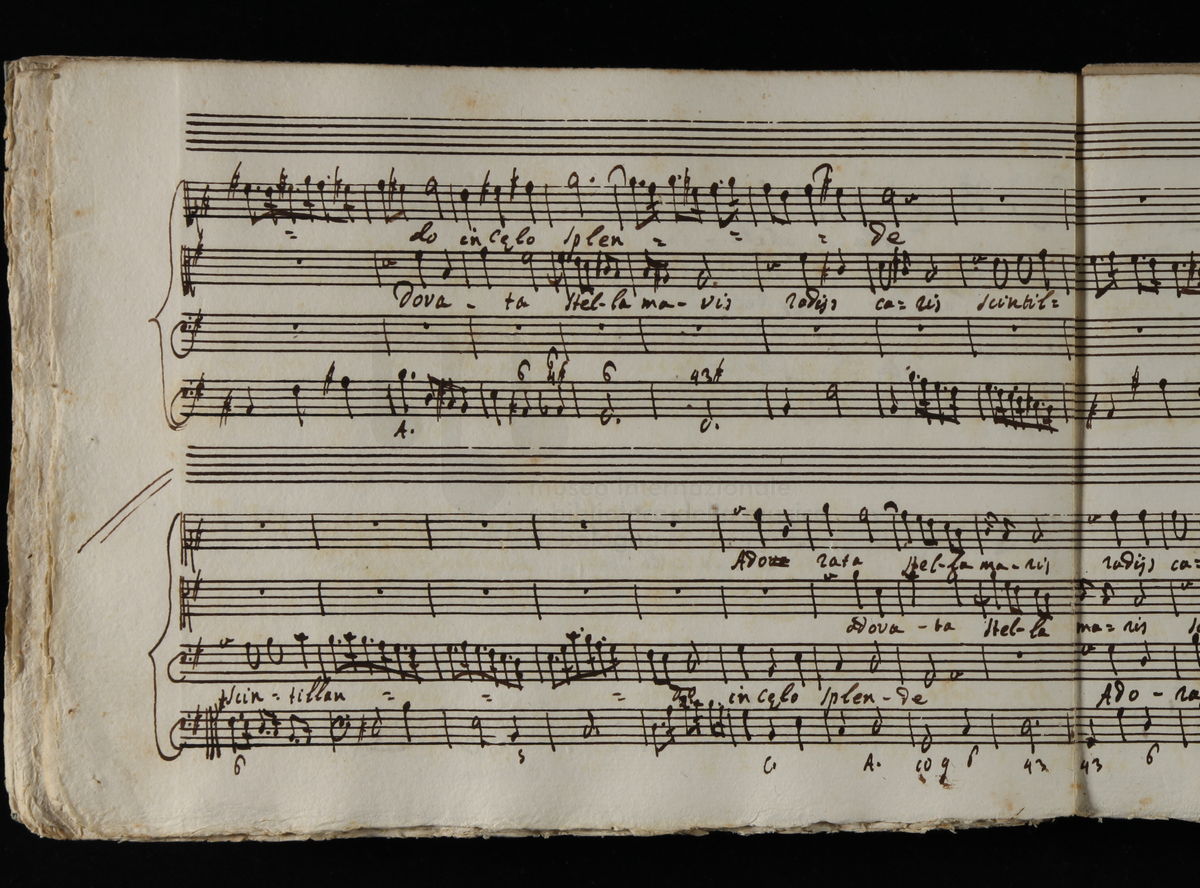 do in Cęlo splen = = = de
Dora - ta stel-la ma-ris radijs ca=ris scintil=
6 6 43#
A.
museo internazionale
Adore rata stel-la ma-ris radijs ca=
Adora - ta stel-la ma=ris
Scin-tillan = = = in Cęlo splen-de Ado-ra
6 5 A. 6 43 43 6